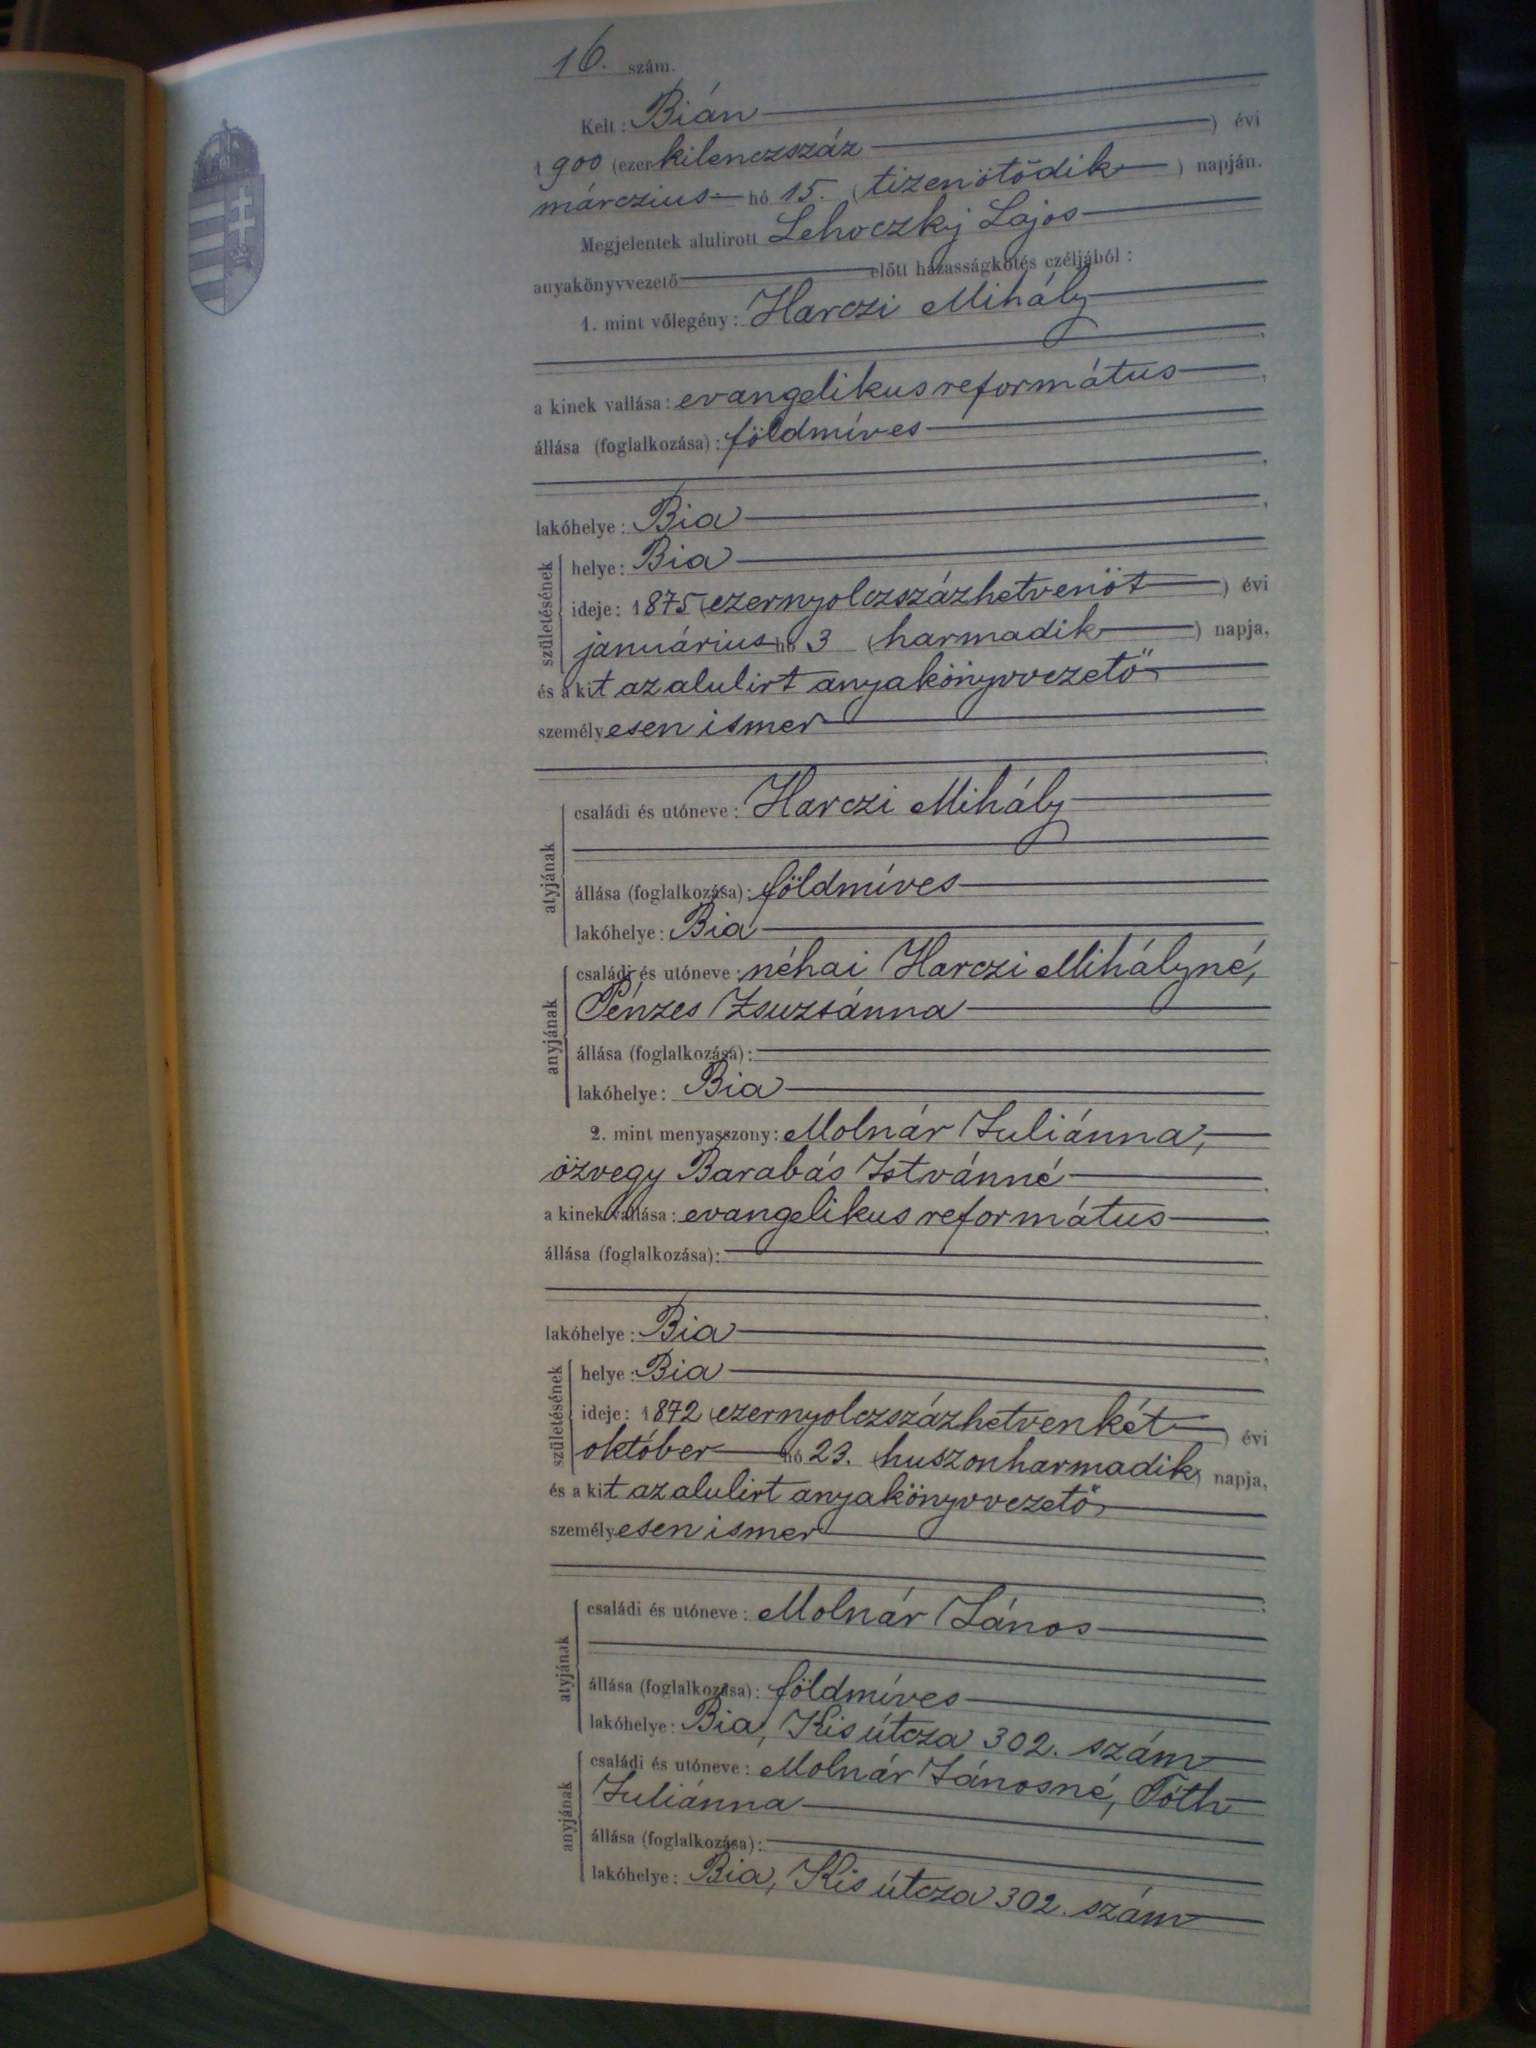 16. szám.
Kelt: Bián
1900 (ezerkilenczszáz ) évi
márczius hó 15. (tizenötödik ) napján.
Megjelentek alulirott Lehoczky Lajos
anyakönyvvezető előtt házasságkötés czéljából:
1. mint vőlegény: Harczi Mihály
a kinek vallása: evangelikus református,
állása (foglalkozása): földmíves
lakóhelye: Bia,
születésének
helye: Bia
ideje: 1875 (ezernyolczszázhetvenöt ) évi
januárius hó 3 (harmadik ) napja,
és a kit az alulirt anyakönyvvezető
személyesen ismer
atyjának
családi és utóneve: Harczi Mihály
állása (foglalkozása): földmíves
lakóhelye: Bia
anyjának
családi és utóneve: néhai Harczi Mihályné,
Pénzes Zsuzsánna
állása (foglalkozása):
lakóhelye: Bia
2. mint menyasszony: Molnár Juliánna,
özvegy Barabás Istvánné
a kinek vallása: evangelikus református
állása (foglalkozása):
lakóhelye: Bia
születésének
helye: Bia
ideje: 1872 (ezernyolczszázhetvenkét ) évi
október hó 23. (huszonharmadik) napja,
és a kit az alulirt anyakönyvvezető
személyesen ismer
atyjának
családi és utóneve: Molnár János
állása (foglalkozása): földmíves
lakóhelye: Bia, Kis útcza 302. szám
anyjának
családi és utóneve: Molnár Jánosné, Tóth
Juliánna
állása (foglalkozása):
lakóhelye: Bia, Kis útcza 302. szám